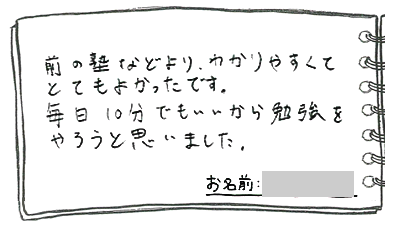 前の塾などより、わかりやすくて
とてもよかったです。
毎日10分でもいいから勉強を
やろうと思いました。
お名前: